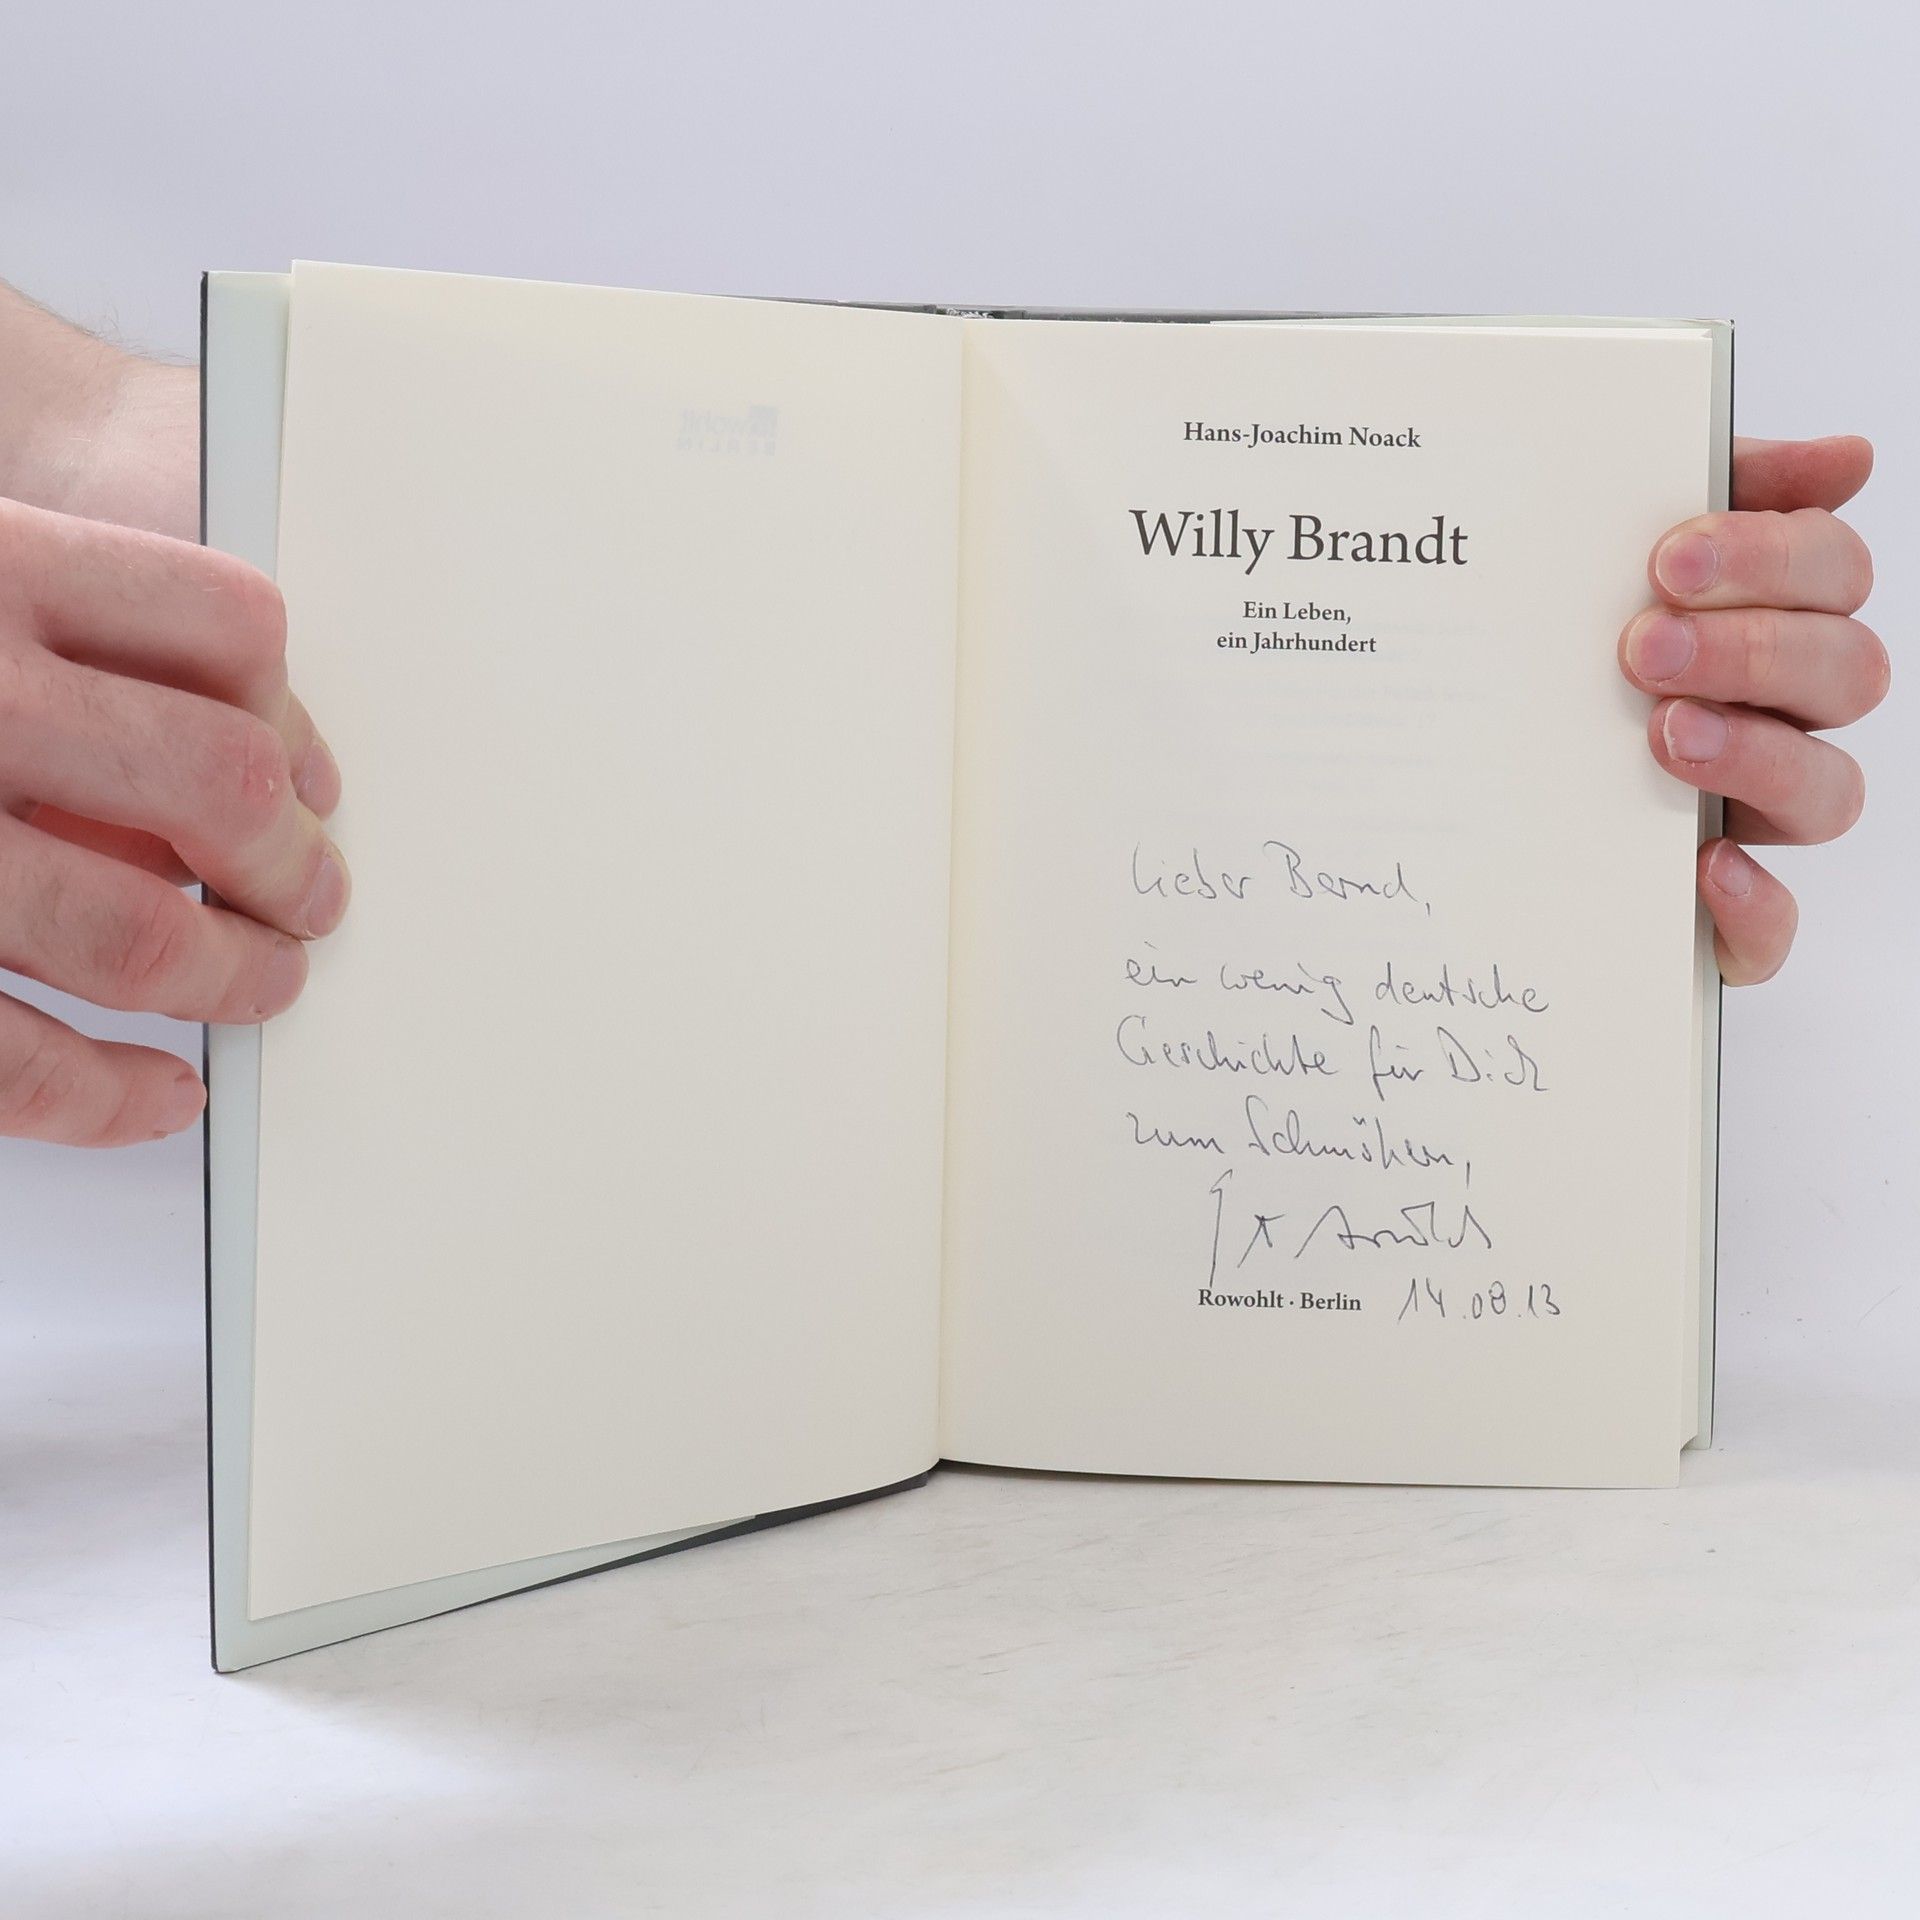 Hans-Joachim Noack
Willy Brandt
Ein Leben,
ein Jahrhundert
Lieber Bernd,
ein wenig deutsche
Geschichte für Dich
zum Schmökern,
Rowohlt · Berlin
14.08.13